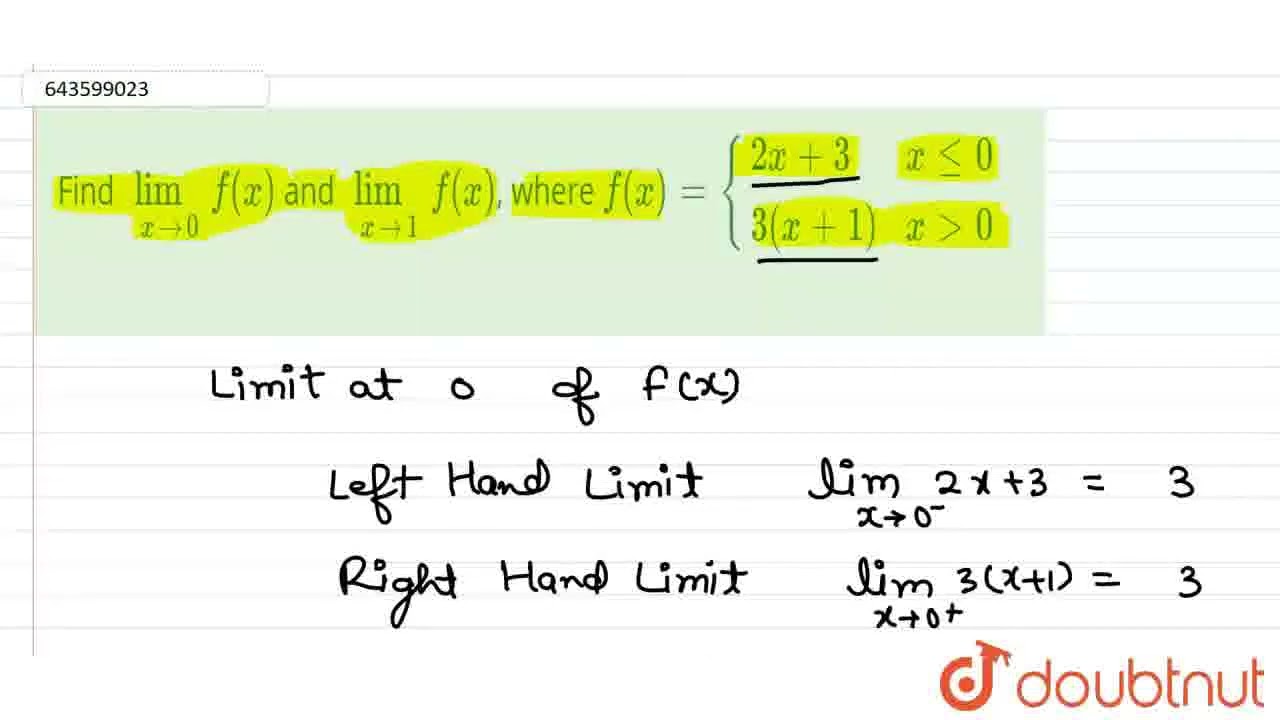 643599023
Find lim x→0 f(x) and lim x→1 f(x), where f(x) = { 2x + 3 x ≤ 0
3(x + 1) x > 0
Limit at 0 of f(x)
Left Hand Limit lim x→0⁻ 2x+3 = 3
Right Hand Limit lim x→0+ 3(x+1) = 3
doubtnut